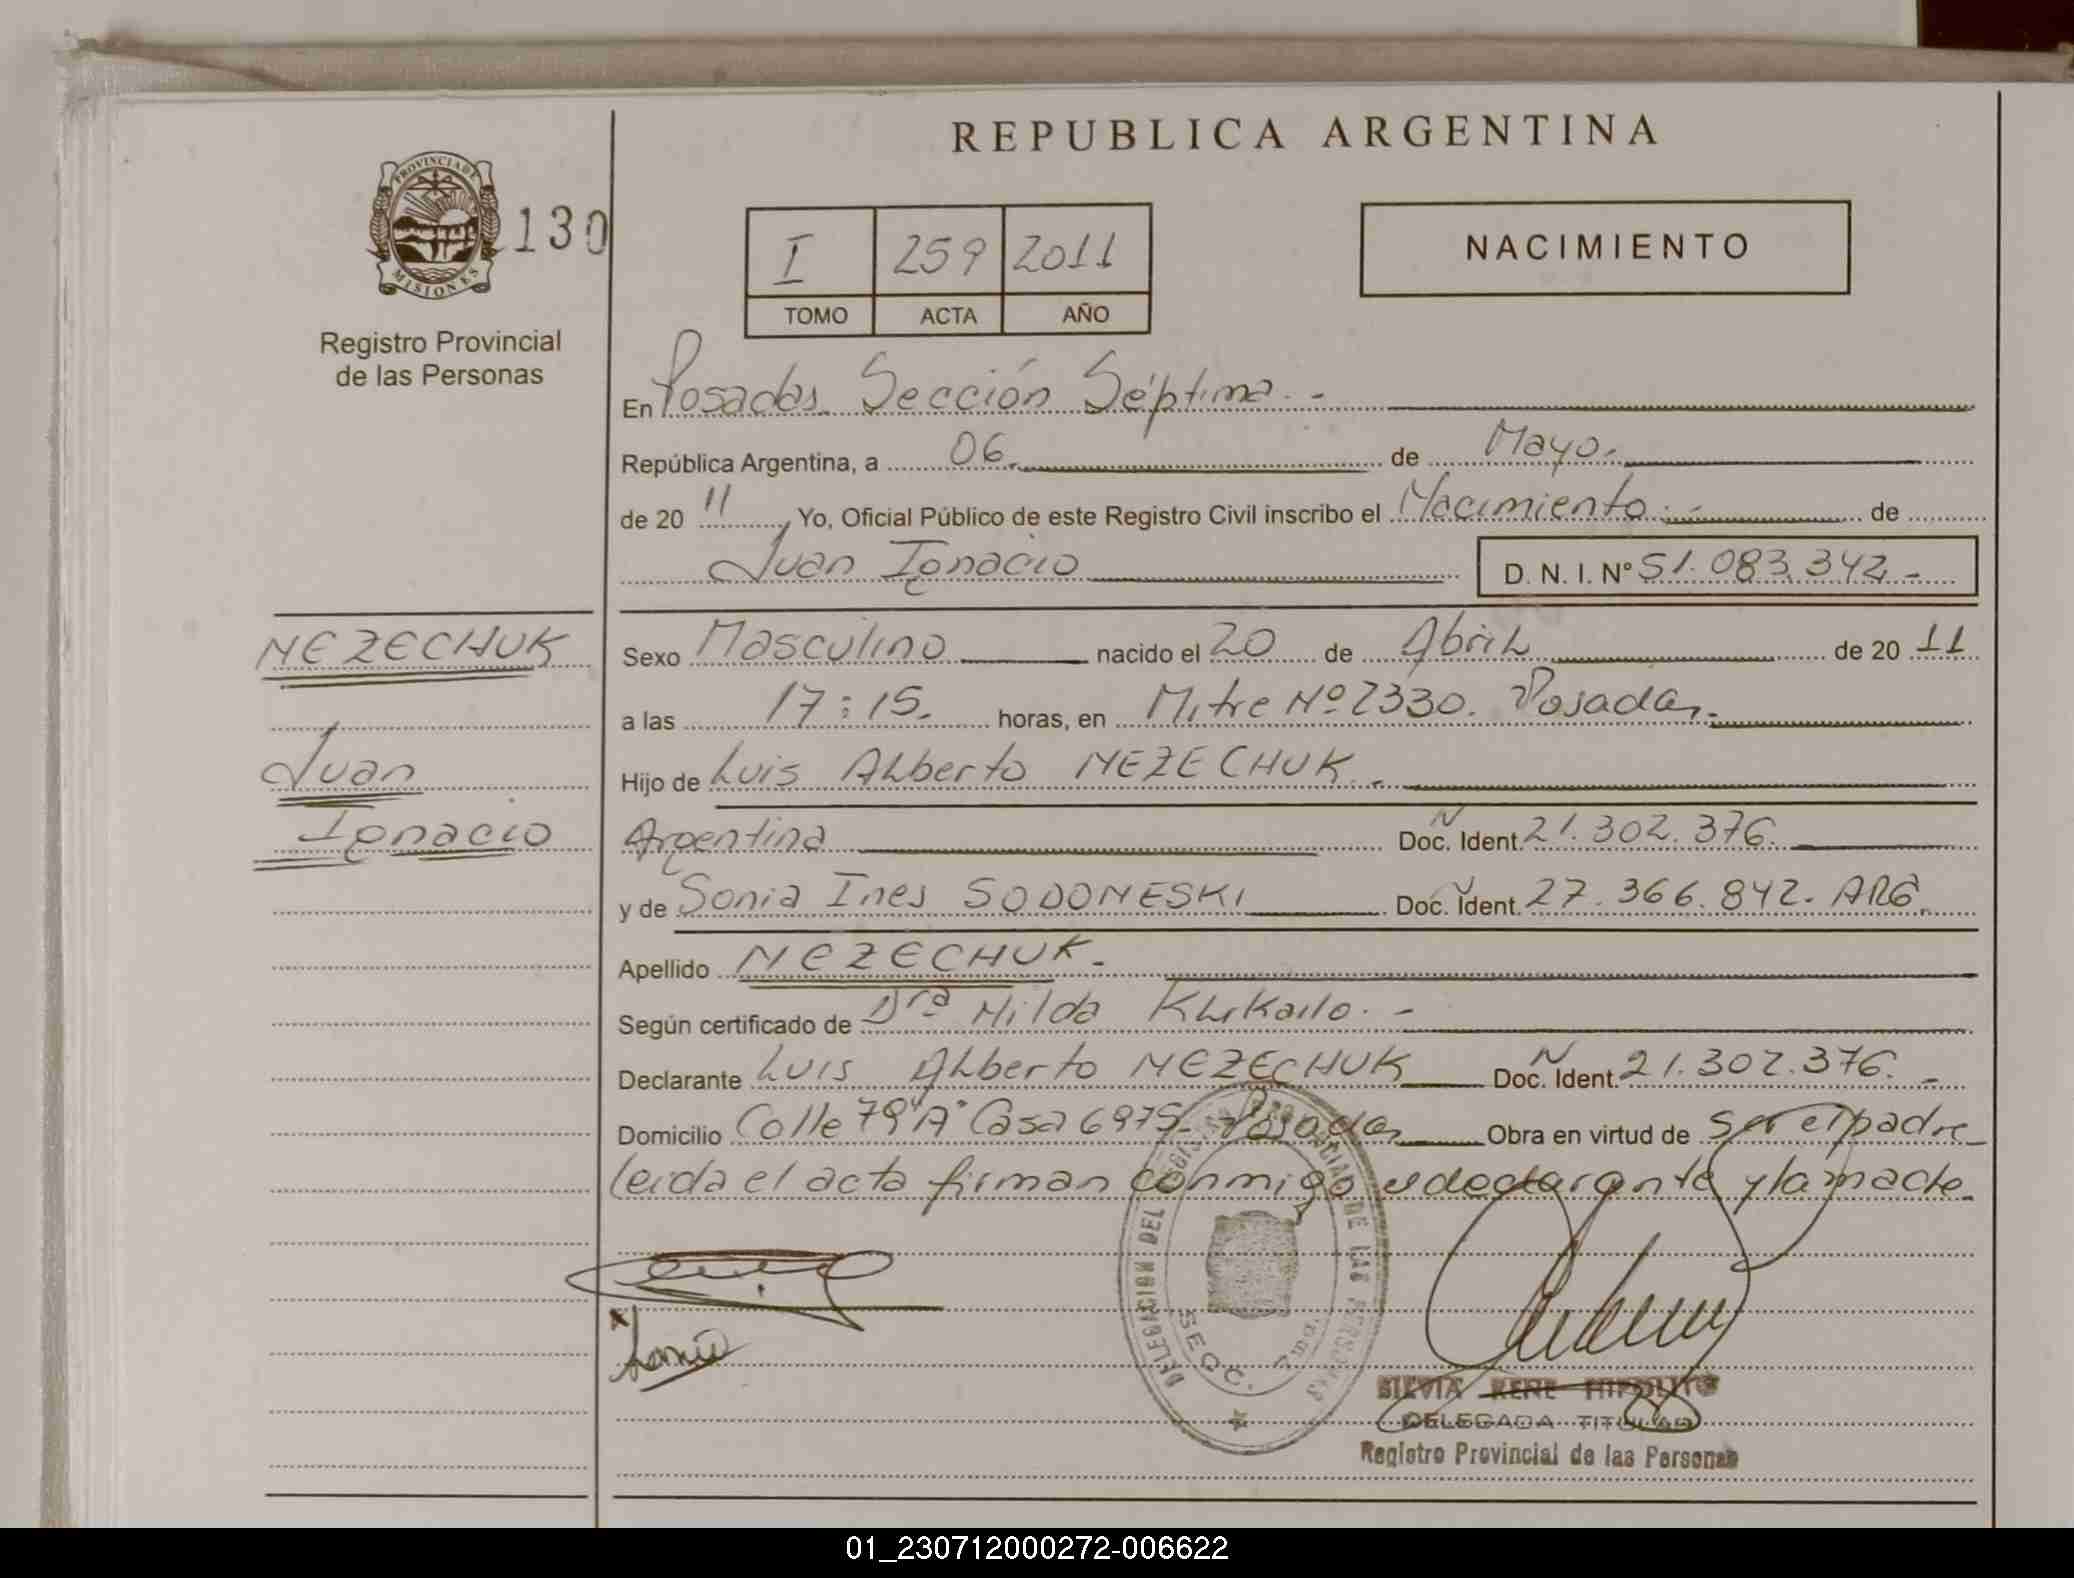 REPUBLICA ARGENTINA
PROVINCIA DE
MISIONES
130
Registro Provincial
de las Personas
I 259 2011
TOMO ACTA AÑO
NACIMIENTO
En Posadas Sección Séptima.-
República Argentina, a 06. de Mayo.
de 20 11 Yo, Oficial Público de este Registro Civil inscribo el Nacimiento.- de
Juan Ignacio D. N. I. Nº 51.083.342.-
NEZECHUK
Juan
Ignacio
Sexo Masculino nacido el 20 de Abril de 20 11
a las 17:15. horas, en Mitre Nº 2330. Posadas.
Hijo de Luis Alberto NEZECHUK.-
Argentina Doc. Ident. 21.302.376.
y de Sonia Ines SODONESKI Doc. Ident. 27.366.842. ARG.
Apellido NEZECHUK.-
Según certificado de Dra Hilda Klikailo.-
Declarante Luis Alberto NEZECHUK Doc. Ident. 21.302.376.-
Domicilio Calle 79"A" Casa 6975. Posadas Obra en virtud de ser el padre
leida el acta firman conmigo el declarante y la madre.
DELEGACION DEL REGISTRO PROVINCIAL DE LAS PERSONAS
SECC. 7ma.
SILVIA RENE HIPOLITO
DELEGADA TITULAR
Registro Provincial de las Personas
01_230712000272-006622